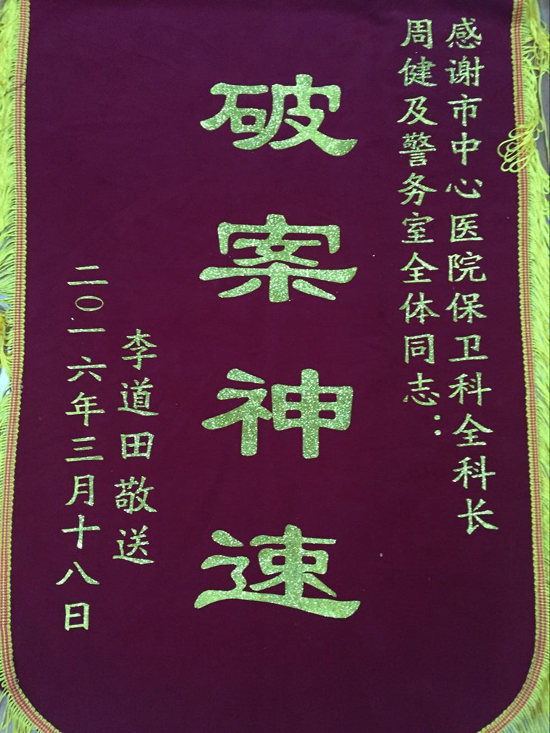 感谢市中心医院保卫科全科长
周健及警务室全体同志：
破案神速
李道田敬送
二〇一六年三月十八日